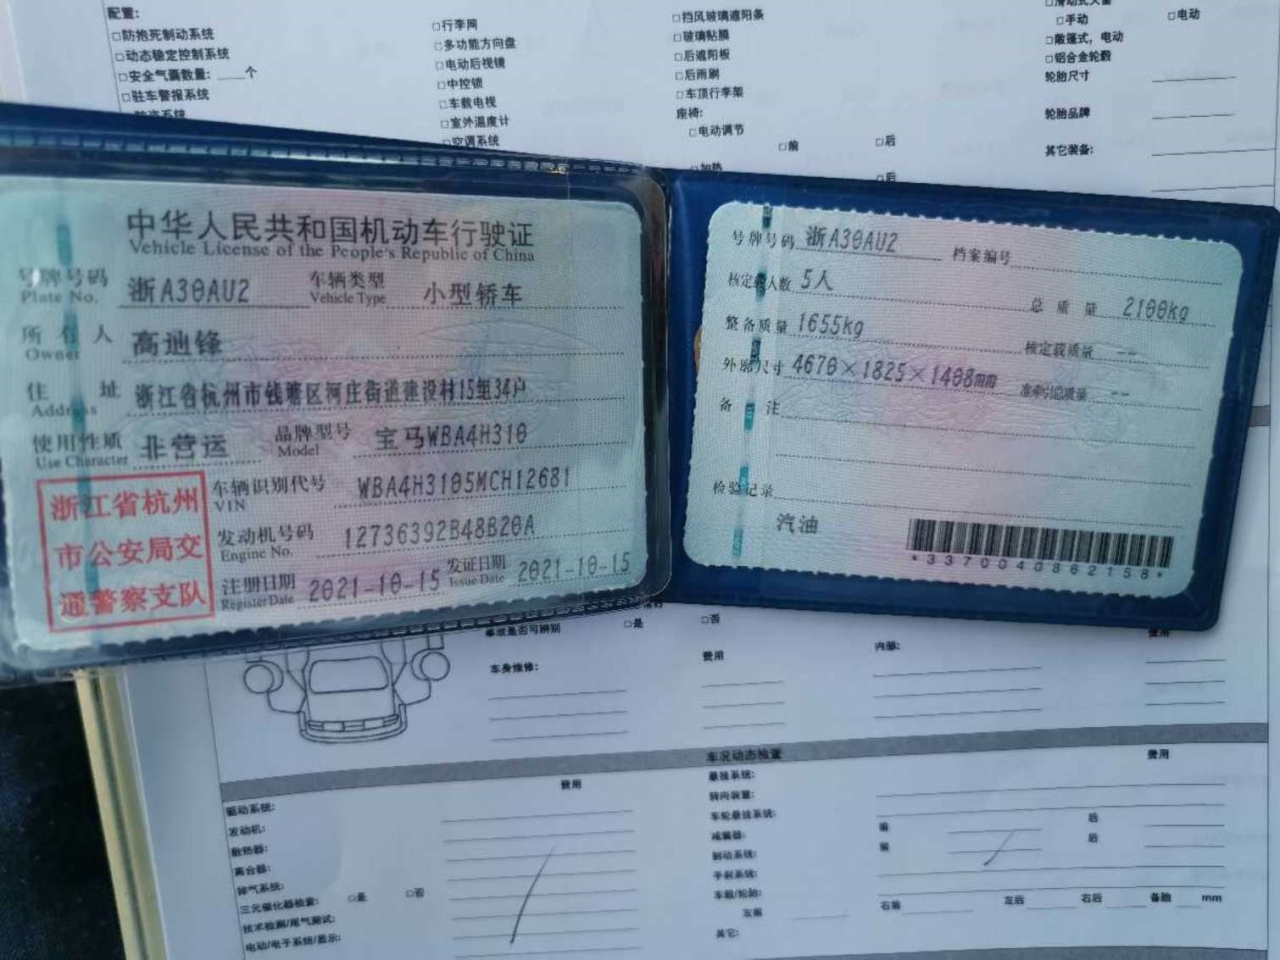 配置:
□防抱死制动系统
□动态稳定控制系统
□安全气囊数量: ____个
□驻车警报系统
□行李网
□多功能方向盘
□电动后视镜
□中控锁
□车载电视
□室外温度计
□空调系统
□挡风玻璃遮阳条
□玻璃贴膜
□后遮阳板
□后雨刷
□车顶行李架
座椅:
□电动调节
□前 □后
□加热
□后
□手动 □电动
□敞篷式，电动
□铝合金轮毂
轮胎尺寸
轮胎品牌
其它装备:
中华人民共和国机动车行驶证
Vehicle License of the People's Republic of China
号牌号码 浙A30AU2 车辆类型 小型轿车
Plate No. Vehicle Type
所有人 高迪锋
Owner
住址 浙江省杭州市钱塘区河庄街道建设村15组34户
Address
使用性质 非营运 品牌型号 宝马WBA4H310
Use Character Model
浙江省杭州
市公安局交
通警察支队
车辆识别代号 WBA4H3105MCH12681
VIN
发动机号码 12736392B48B20A
Engine No.
注册日期 2021-10-15 发证日期 2021-10-15
Register Date Issue Date
号牌号码 浙A30AU2 档案编号
核定载人数 5人 总质量 2100kg
整备质量 1655kg 核定载质量 --
外廓尺寸 4670×1825×1408mm 准牵引总质量 --
备注
检验记录
汽油
*3370040862158*
事故是否可辨别 □是 □否
车身维修: 费用 内部: 费用
车况动态检查
费用 费用
驱动系统:
发动机:
散热器:
离合器:
排气系统:
三元催化器检查: □是 □否
技术检测/尾气测试:
电动/电子系统/显示:
悬挂系统:
转向装置:
车轮悬挂系统: 前 后
减震器: 后
制动系统:
手刹系统:
车毂/轮胎:
左前 右前 左后 右后 备胎 mm
其它: